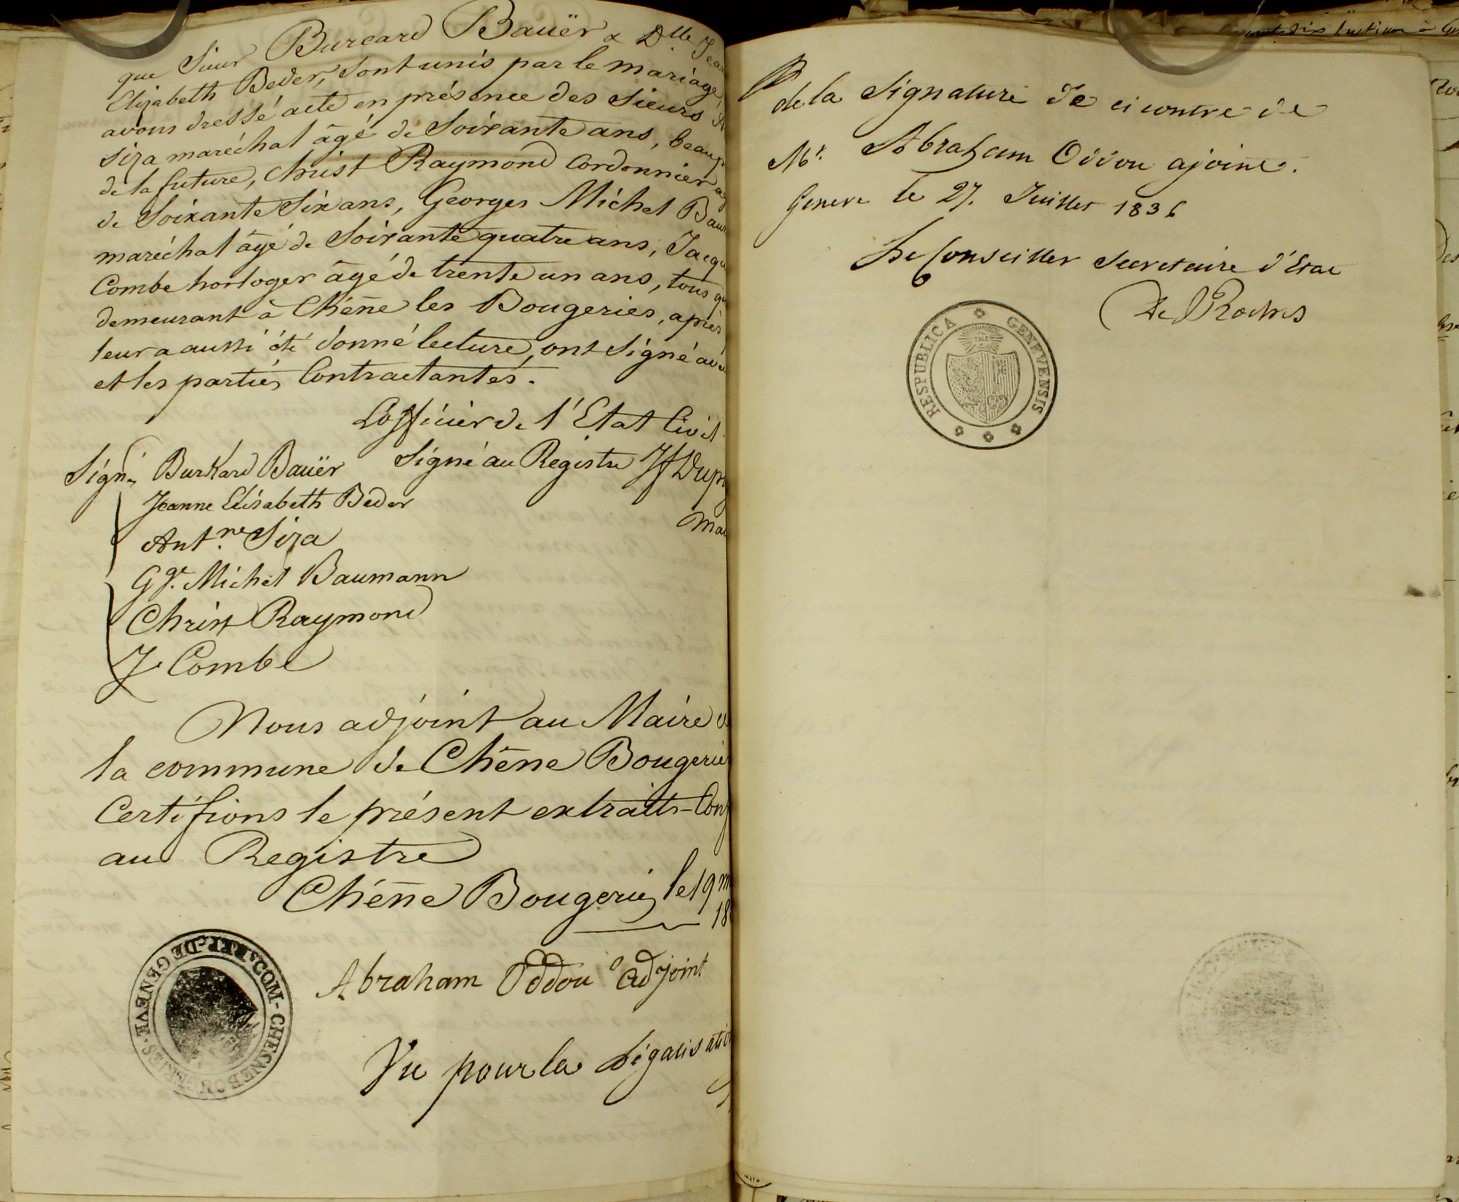 que Sieur Burcard Bauër & Dlle Jea
Elizabeth Beder, sont unis par le mariage,
avons dressé acte en présence des Sieurs
Siza maréchal âgé de Soixante ans, beaup
de la future, Christ Raymond Cordonnier ag
de Soixante Six ans, Georges Michel Bau
maréchal âgé de Soixante quatre ans, Jacqu
Combe horloger âgé de trente un ans, tous qu
demeurant à Chêne les Bougeries, après
leur a aussi été donné lecture, ont Signé ave
et les parties Contractantes.
L'officier de l'Etat Civil
Signé au Registre Dup
Ma
Signé Burkard Bauër
Jeanne Elisabeth Beder
Antne Siza
Gge Michel Baumann
Christ Raymond
J. Combe
Nous adjoint au Maire de
la commune de Chêne Bougeries
Certifions le présent extrait Conf
au Registre
Chêne Bougeries le 19 m
18
Abraham Oddou adjoint
Vu pour la Légalisation
COM. CHESNEBOUGERIES
DE GENEVE
de la Signature de ci contre de
Mr. Abraham Oddou ajoint.
Geneve le 27. Juillet 1836
Le Conseiller Secretaire d'Etat
De Roches
RESPUBLICA GENEVENSIS